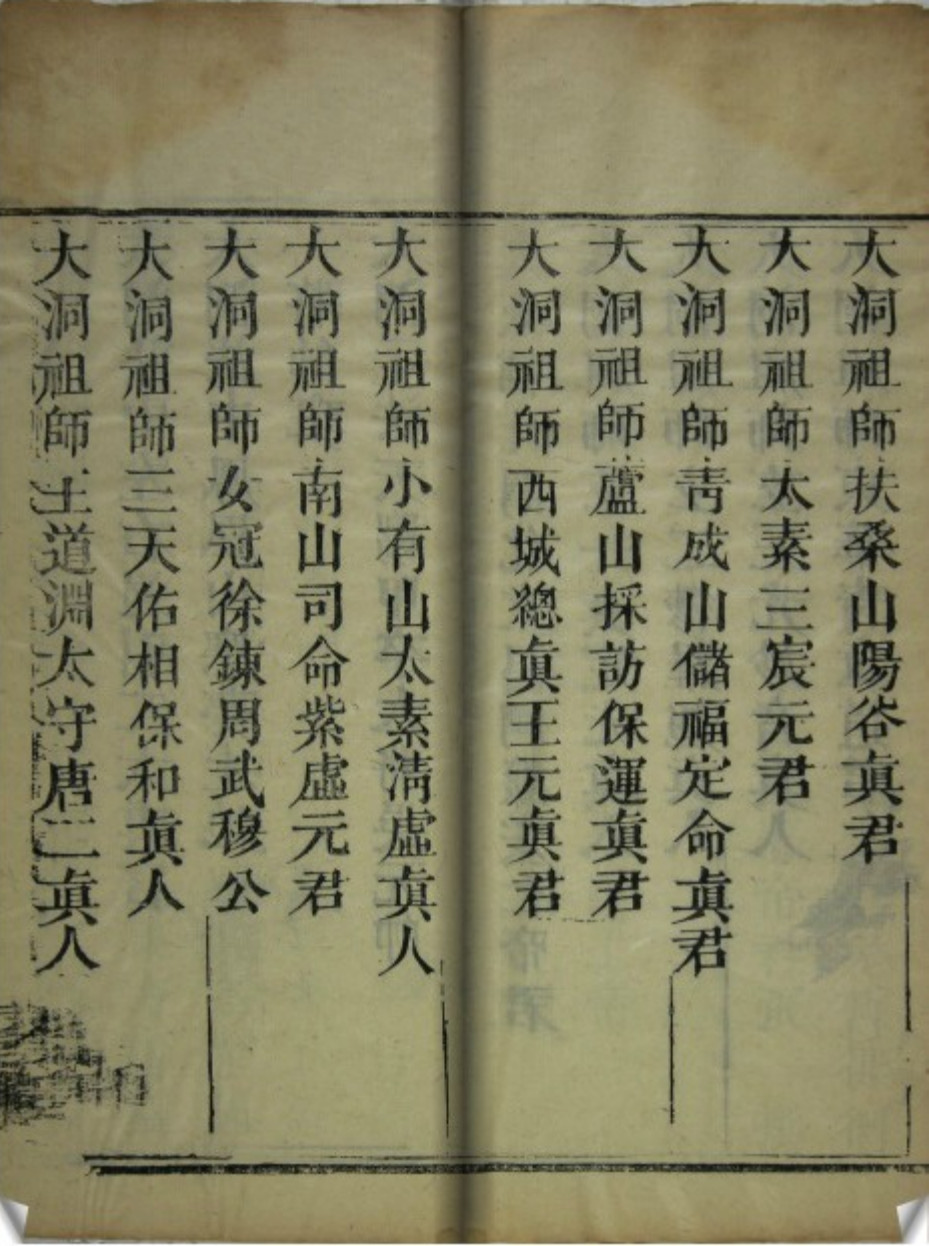 大洞祖師扶桑山陽谷真君
大洞祖師太素三宸元君
大洞祖師青成山儲福定命真君
大洞祖師蘆山採訪保運真君
大洞祖師西城總真王元真君
大洞祖師小有山太素清虛真人
大洞祖師南山司命紫虛元君
大洞祖師女冠徐鍊周武穆公
大洞祖師三天佑相保和真人
大洞祖師王道淵太守唐二真人